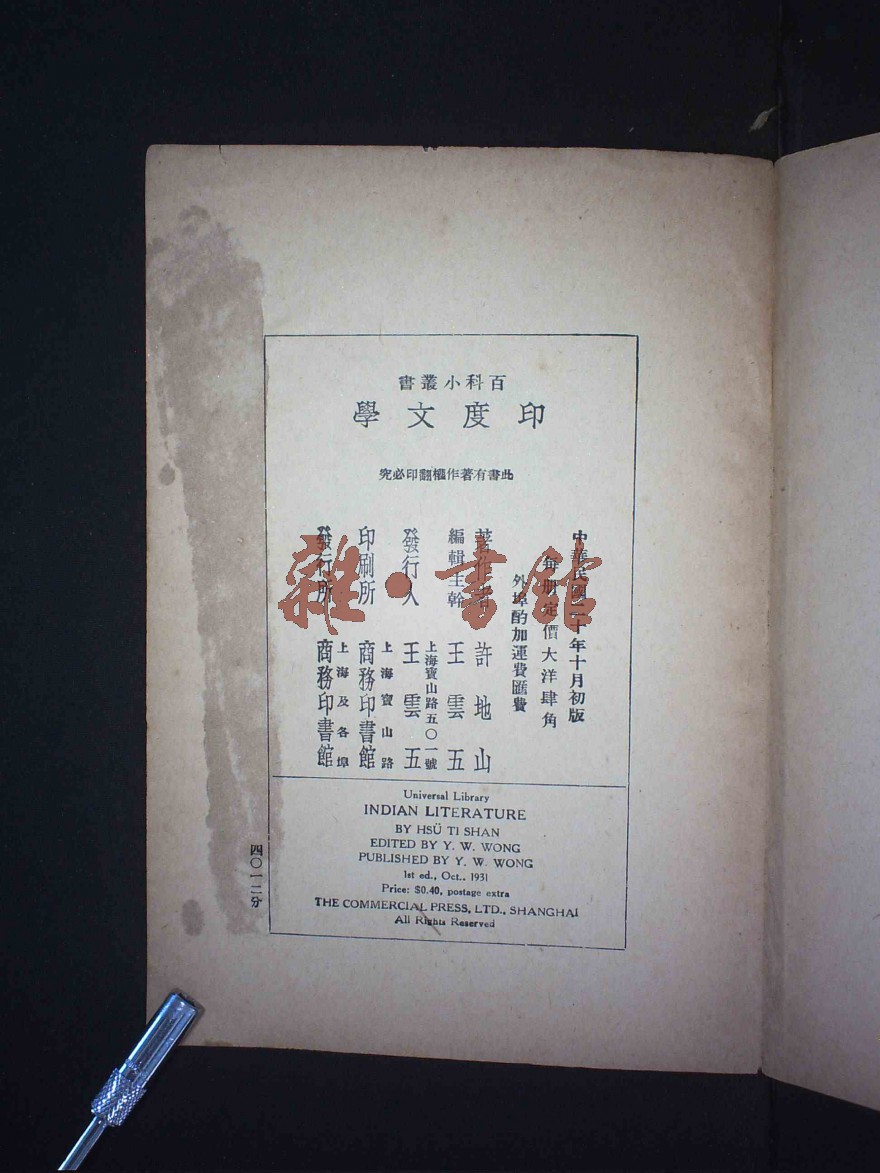 百科小叢書
印度文學
此書有著作權翻印必究
中華民國二十年十月初版
每册定價大洋肆角
外埠酌加運費匯費
著作者 許地山
編輯主幹 王雲五
上海寶山路五〇一號
發行人 王雲五
上海寶山路
印刷所 商務印書館
上海及各埠
發行所 商務印書館
Universal Library
INDIAN LITERATURE
BY HSÜ TI SHAN
EDITED BY Y. W. WONG
PUBLISHED BY Y. W. WONG
1st ed., Oct., 1931
Price: $0.40, postage extra
THE COMMERCIAL PRESS, LTD., SHANGHAI
All Rights Reserved
四〇一二分
雜·書館